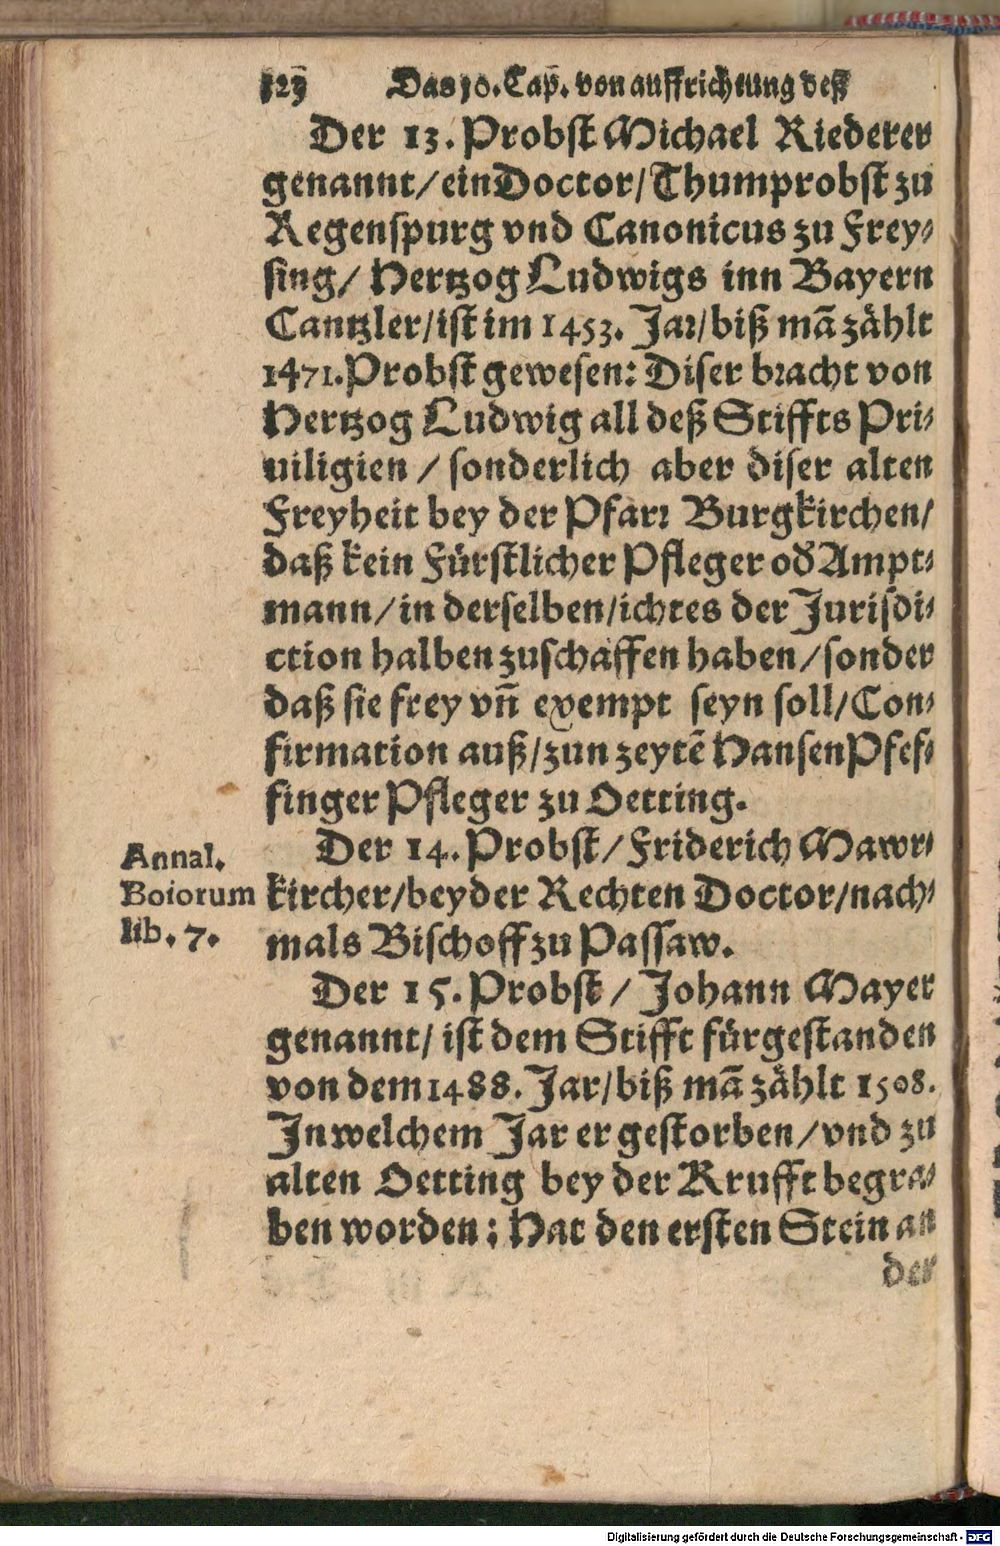 Das 10. Cap. von auffrichtung deß
Der 13. Probst Michael Riederer
genannt/ein Doctor/Thumprobst zu
Regenspurg vnd Canonicus zu Frey⸗
sing/ Hertzog Ludwigs inn Bayern
Cantzler/ist im 1453. Jar/biß mã zählt
1471. Probst gewesen: Diser bracht von
Hertzog Ludwig all deß Stiffts Pri⸗
uiligien / sonderlich aber diser alten
Freyheit bey der Pfarr Burgkirchen/
daß kein Fürstlicher Pfleger od̃ Ampt⸗
mann/in derselben/ichtes der Jurisdi⸗
ction halben zuschaffen haben/sonder
daß sie frey vñ exempt seyn soll/Con⸗
firmation auß/zun zeytẽ Hansen Pfef⸗
finger Pfleger zu Oetting.
Der 14. Probst/Friderich Mawr⸗
Annal.
Boiorum
lib. 7.
kircher/beyder Rechten Doctor/nach⸗
mals Bischoff zu Passaw.
Der 15. Probst / Johann Mayer
genannt/ ist dem Stifft fürgestanden
von dem 1488. Jar/biß mã zählt 1508.
In welchem Jar er gestorben/vnd zu
alten Oetting bey der Krufft begra⸗
ben worden: Hat den ersten Stein an
der
Digitalisierung gefördert durch die Deutsche Forschungsgemeinschaft - DFG